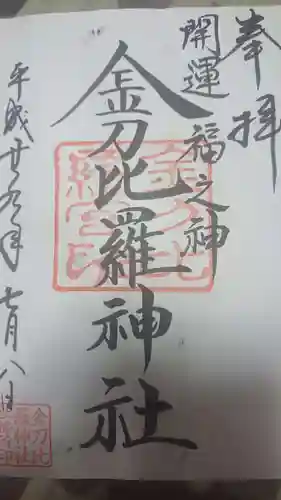 奉拝
開運 福之神
金刀比羅神社
平成廿九年七月八日